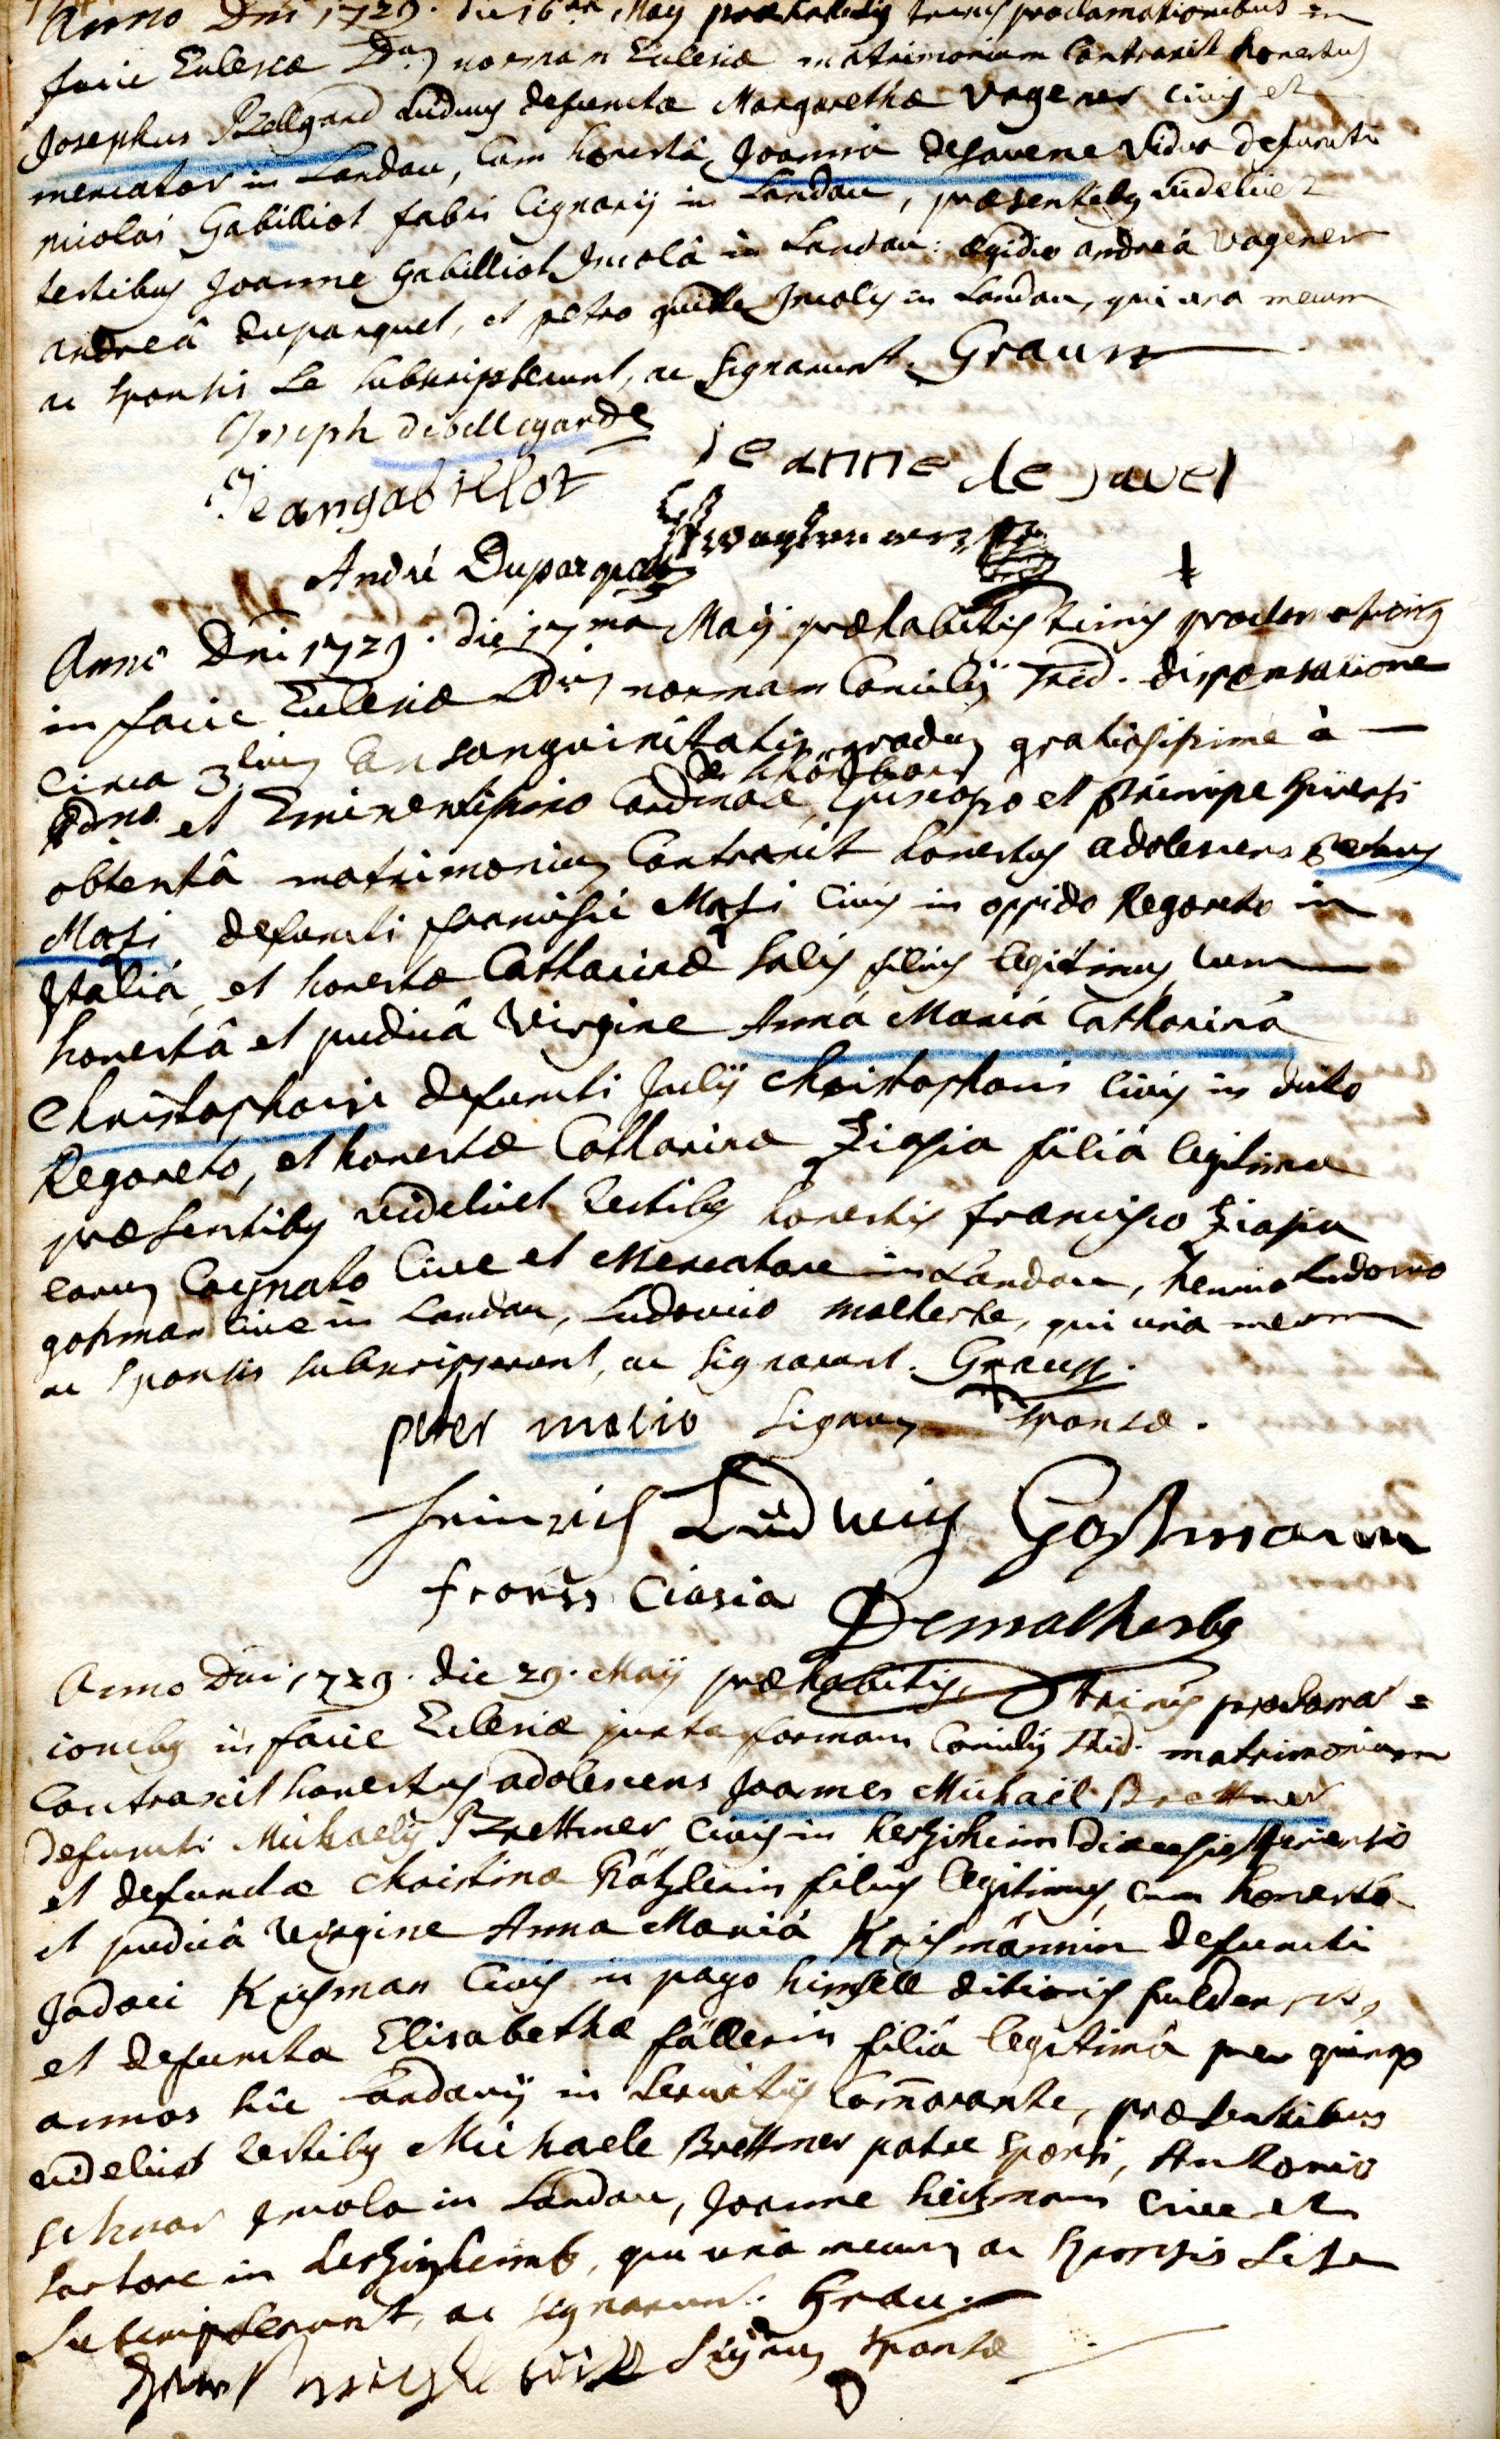 Anno Dni 1729. die 16ta Maÿ præhabitis trinis proclamationibus in
facie Eclesiæ normam Eclesiæ matrimonium Contraxit honestus
Josephus Bellgard viduus defunctæ Margarethæ Vagener civis et
mercator in Landau, Cum honestâ Joannâ desavene vidua defuncti
nicolai Gabilliot fabri lignarij in Landau, præsentibus videlicet
testibus Joanne Gabilliot Jncolâ in Landau: Ægidio andreâ Vagener
andreâ duparquet, et petro Jncolis in Landau, qui una mecum
ac sponsis se subscripserunt, ac signarunt. Grauss
Joseph debellegarde
Jeanne de javel
Jean gabillot
André Duparquet
Anno Dni 1729. die 17ma Maÿ præhabitis trinis proclamationibus
in facie Eclesiæ normam Concilÿ Trid. dispensatione
Circa 3tium Consanguinitatis gradum gratiosissime à
de schönborn
Edmo et Eminentissimo Cardinale, Episcopo et Principe Spirensi
obtentâ matrimonium Contraxit honestus adolescens Petrus
Masi defuncti francisci Masi Civis in oppido Regoreto in
Jtaliâ, et honestæ Catharinæ Salis filius legitimus, cum
honestâ et pudicâ Virgine Annâ Mariâ Catharinâ
Christophorin defuncti Julÿ Christophoris Civis in dicto
Regoreto, et honestæ Catharinæ Ziasia filiâ legitima
præsentibus videlicet testibus honestis francisco Ziasia
eorum Cognato Cive et Mercatore in Landau, henrico Ludovico
gosman cive in Landau, Ludovico malherbe, qui unâ mecum
ac sponsis subscripserunt, ac signarunt. Grauss.
peter masio Signum sponsæ.
Heinrich Ludwig Goßmann
Ciasia Demalherbe
Anno Dni 1729. die 29. Maÿ præhabitis trinis proclama=
tionibus in facie Eclesiæ juxta formam Concilÿ Trid. matrimonium
Contraxit honestus adolescens Joannes Michaël Brettmer
defuncti Michaelis Brettmer Civis in herxheim Diœcesis Spirensis
et defunctæ Christinæ Kötzlerin filius legitimus, cum honestâ
et pudicâ Virgine Anna Mariâ KrisMännin defuncti
Jodoci Krisman Civis in pago himsell ditionis fuldensis,
et defuncta Elisabethæ fällerin filiâ legitimâ per quinque
annos hic Landavij in servitijs Commorante, præsentibus
videlicet testibus Michaele Brettmer patre sponsi, Antonio
schnar Jncola in Landau, Joanne heitzmann cive et
sartore in qui unâ mecum ac sponsis sese
Subscripserunt, ac signarunt. Grau
Signum sponsæ